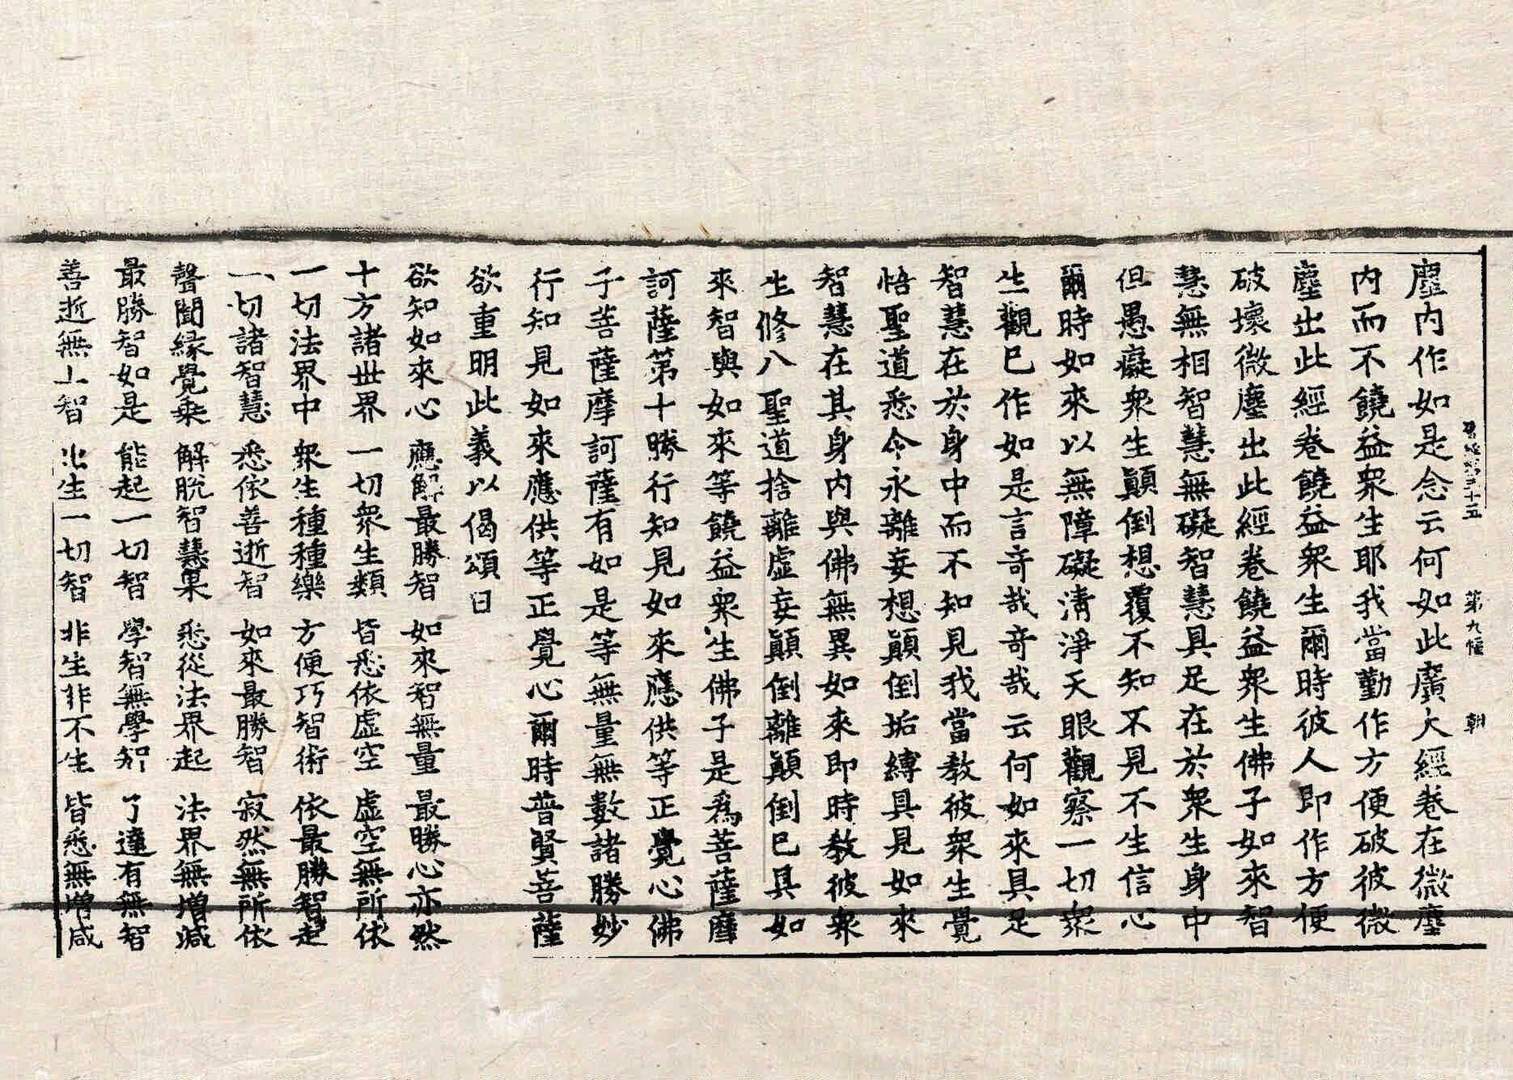 晉經第三十五 第九幅 朝
塵內作如是念云何如此廣大經卷在微塵
內而不饒益眾生耶我當勤作方便破彼微
塵出此經卷饒益眾生爾時彼人即作方便
破壞微塵出此經卷饒益眾生佛子如來智
慧無相智慧無礙智慧具足在於眾生身中
但愚癡眾生顛倒想覆不知不見不生信心
爾時如來以無障礙清淨天眼觀察一切眾
生觀已作如是言奇哉奇哉云何如來具足
智慧在於身中而不知見我當教彼眾生覺
悟聖道悉令永離妄想顛倒垢縛具見如來
智慧在其身內與佛無異如來即時教彼眾
生修八聖道捨離虛妄顛倒離顛倒已具如
來智與如來等饒益眾生佛子是為菩薩摩
訶薩第十勝行知見如來應供等正覺心佛
子菩薩摩訶薩有如是等無量無數諸勝妙
行知見如來應供等正覺心爾時普賢菩薩
欲重明此義以偈頌曰
欲知如來心 應解最勝智 如來智無量 最勝心亦然
十方諸世界 一切眾生類 皆悉依虛空 虛空無所依
一切法界中 眾生種種樂 方便巧智術 依最勝智起
一切諸智慧 悉依善逝智 如來最勝智 寂然無所依
聲聞緣覺乘 解脫智慧果 悉從法界起 法界無增減
最勝智如是 能起一切智 學智無學智 了達有無智
善逝無上智 出生一切智 非生非不生 皆悉無增減